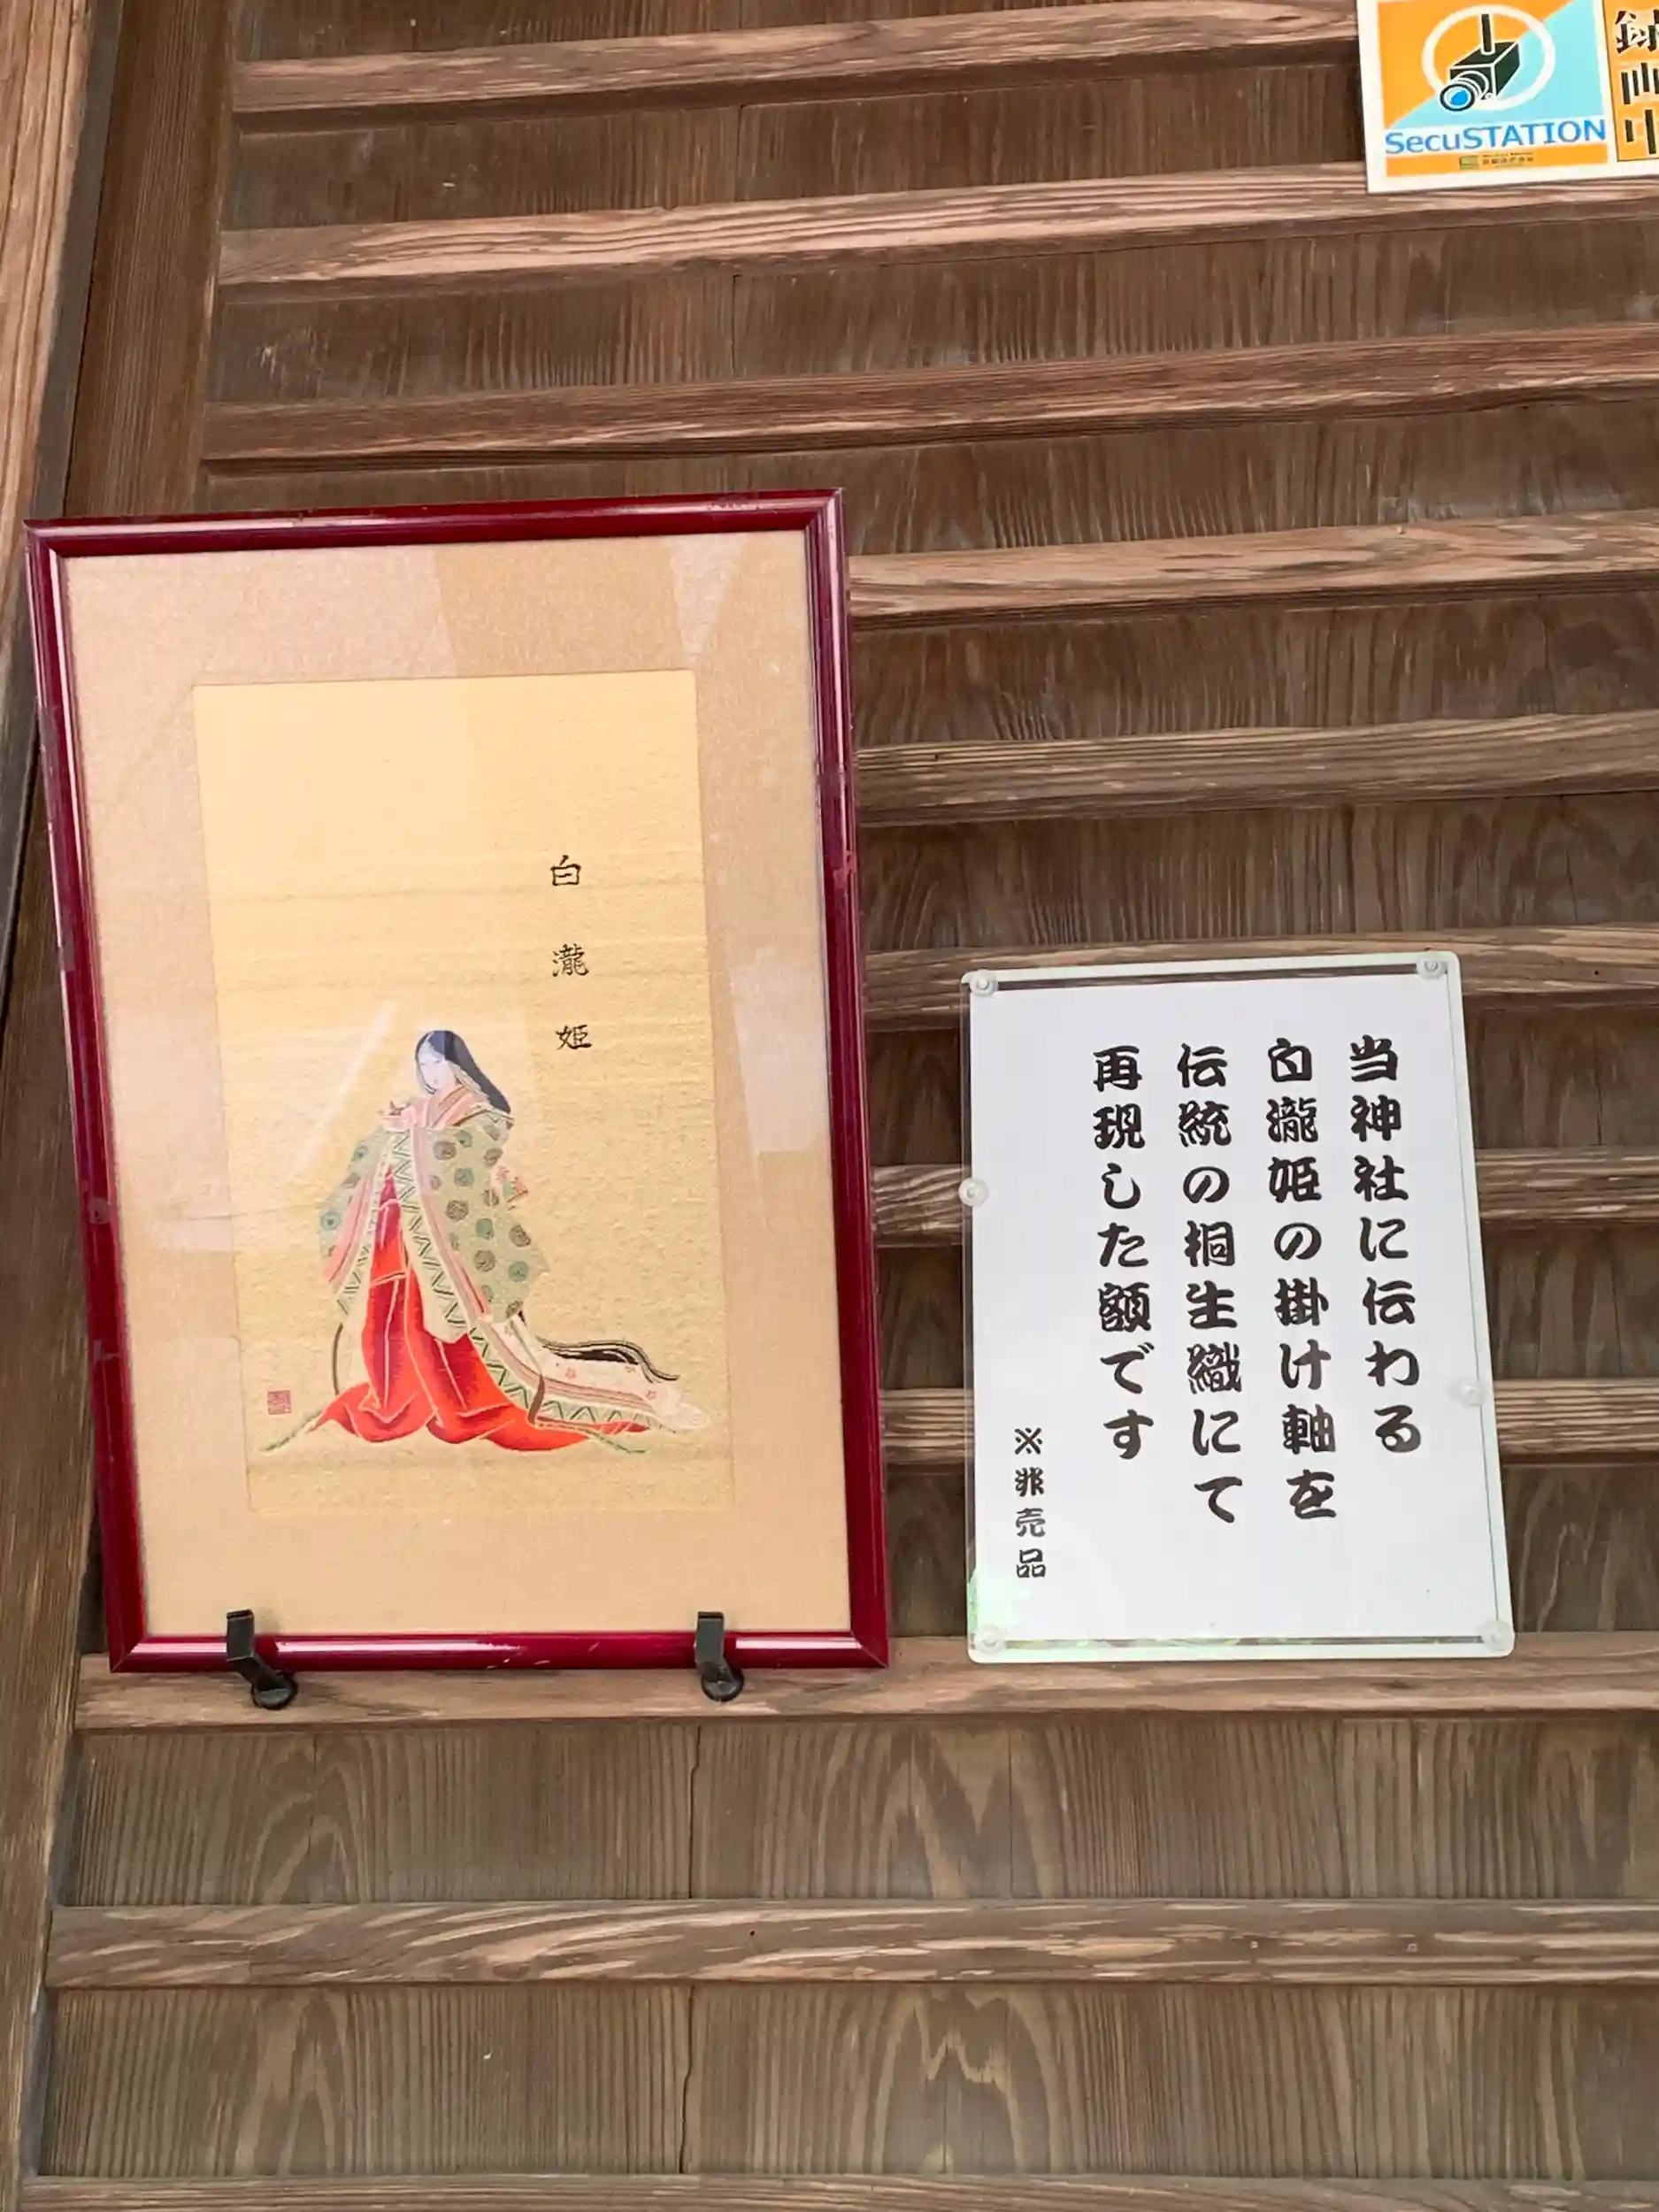 SecuSTATION
録画中
白瀧姫
当神社に伝わる
白瀧姫の掛け軸を
伝統の桐生織にて
再現した額です
※非売品